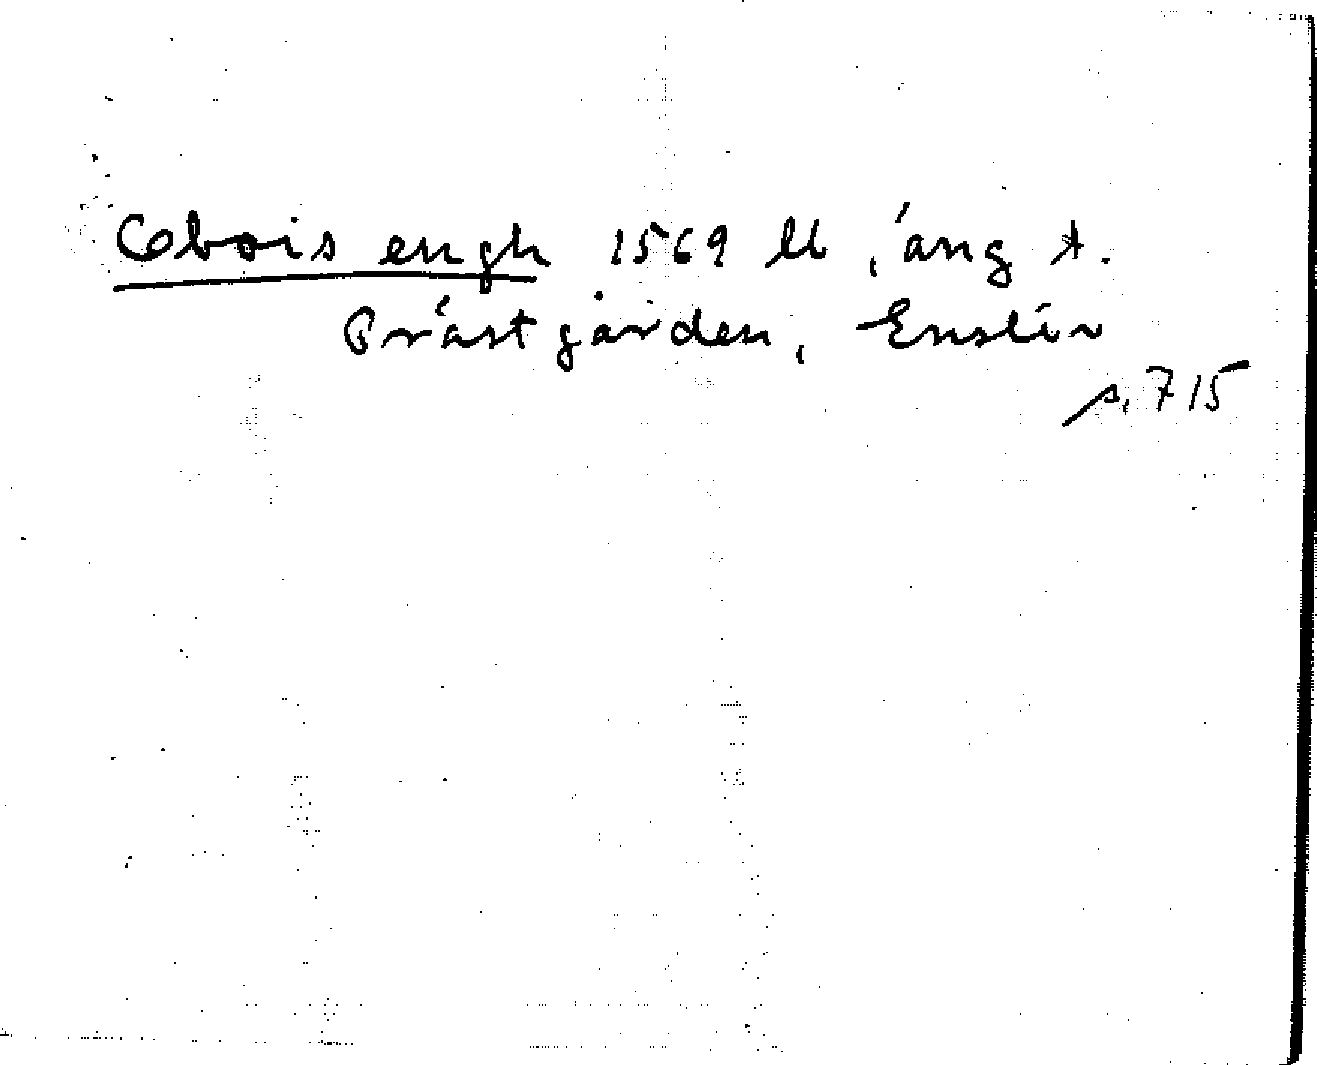 Obois engh 1569 ll, äng t.
Prästgården, Enslöv
s. 715